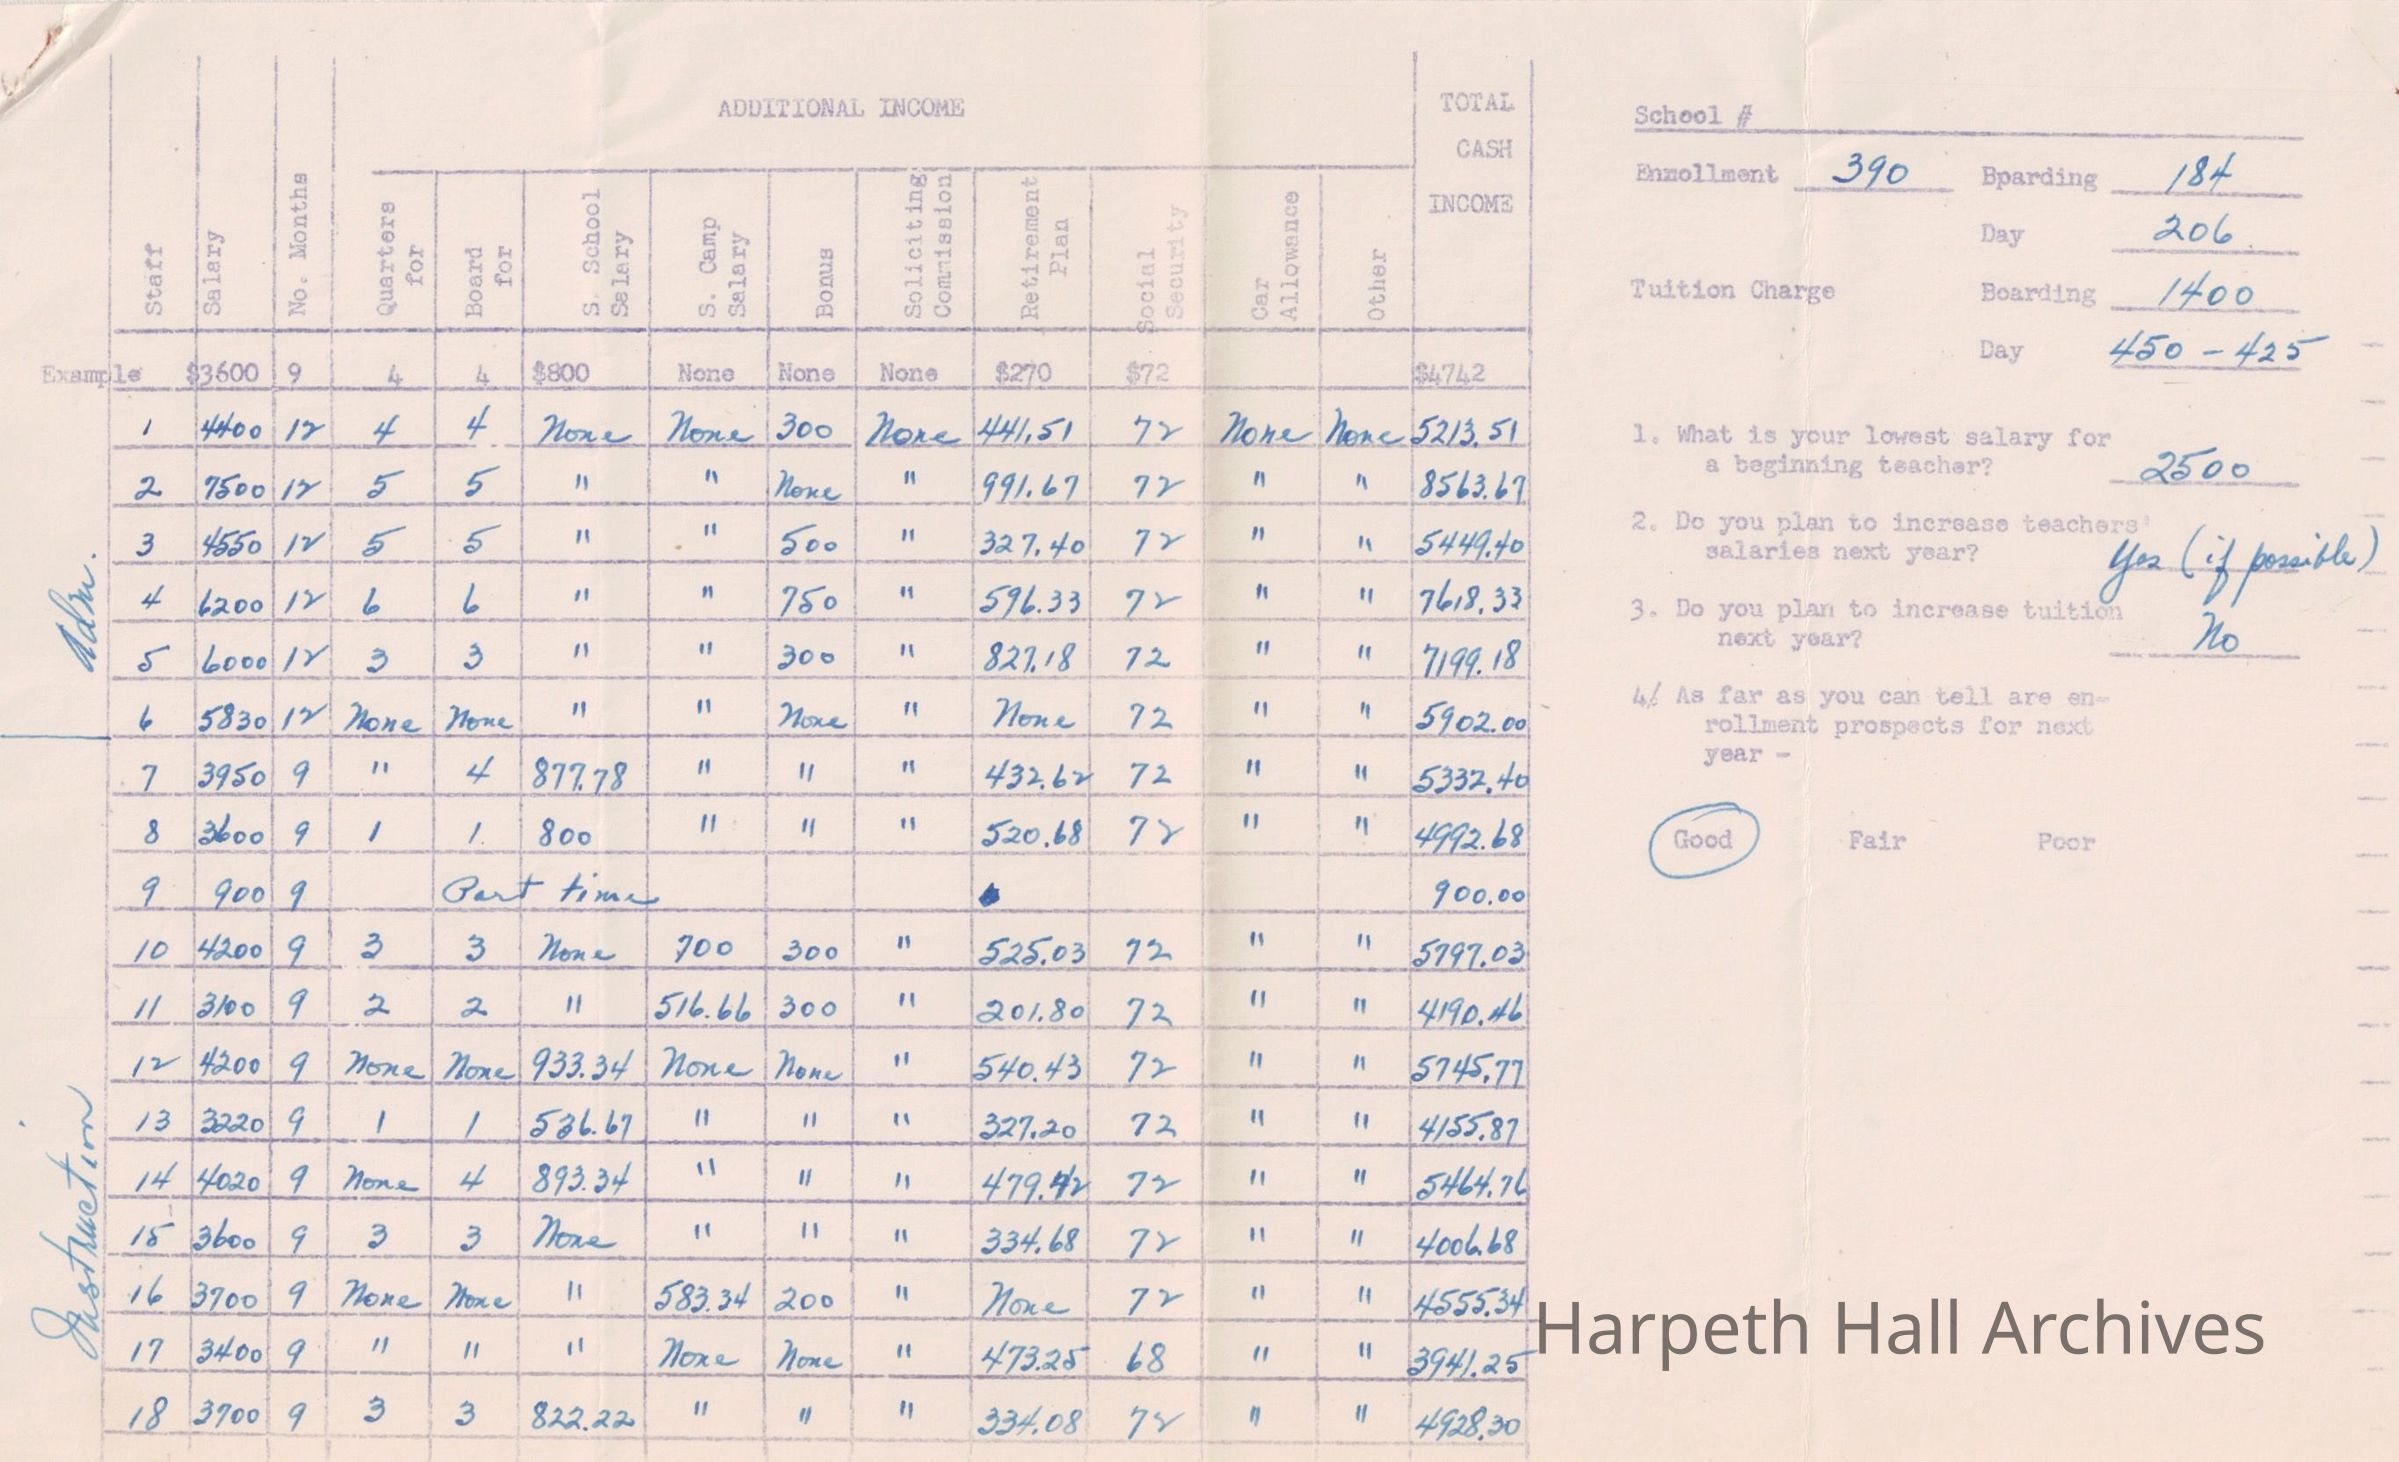 ADDITIONAL INCOME
TOTAL
CASH
INCOME
Staff
Salary
No. Months
Quarters for
Board for
S. School Salary
S. Camp Salary
Bonus
Soliciting Commission
Retirement Plan
Social Security
Car Allowance
Other
Example $3600 9 4 4 $800 None None None $270 $72 $4742
1 4400 12 4 4 None None 300 None 441.51 72 None None 5213.51
2 7500 12 5 5 " " None " 991.67 72 " " 8563.67
3 4550 12 5 5 " " 500 " 327.40 72 " " 5449.40
4 6200 12 6 6 " " 750 " 596.33 72 " " 7618.33
5 6000 12 3 3 " " 300 " 827.18 72 " " 7199.18
6 5830 12 None None " " None " None 72 " " 5902.00
7 3950 9 " 4 877.78 " " " 432.62 72 " " 5332.40
8 3600 9 1 1 800 " " " 520.68 72 " " 4992.68
9 900 9 Part time 900.00
10 4200 9 3 3 None 700 300 " 525.03 72 " " 5797.03
11 3100 9 2 2 " 516.66 300 " 201.80 72 " " 4190.46
12 4200 9 None None 933.34 None None " 540.43 72 " " 5745.77
13 3220 9 1 1 536.67 " " " 327.20 72 " " 4155.87
14 4020 9 None 4 893.34 " " " 479.42 72 " " 5464.76
15 3600 9 3 3 None " " " 334.68 72 " " 4006.68
16 3700 9 None None " 583.34 200 " None 72 " " 4555.34
17 3400 9 " " " None None " 473.25 68 " " 3941.25
18 3700 9 3 3 822.22 " " " 334.08 72 " " 4928.30
Adm.
Instruction
School #
Enrollment 390 Bparding 184
Day 206
Tuition Charge Boarding 1400
Day 450 - 425
1. What is your lowest salary for
a beginning teacher? 2500
2. Do you plan to increase teachers'
salaries next year? Yes (if possible)
3. Do you plan to increase tuition
next year? No
4/ As far as you can tell are en-
rollment prospects for next
year -
Good Fair Poor
Harpeth Hall Archives